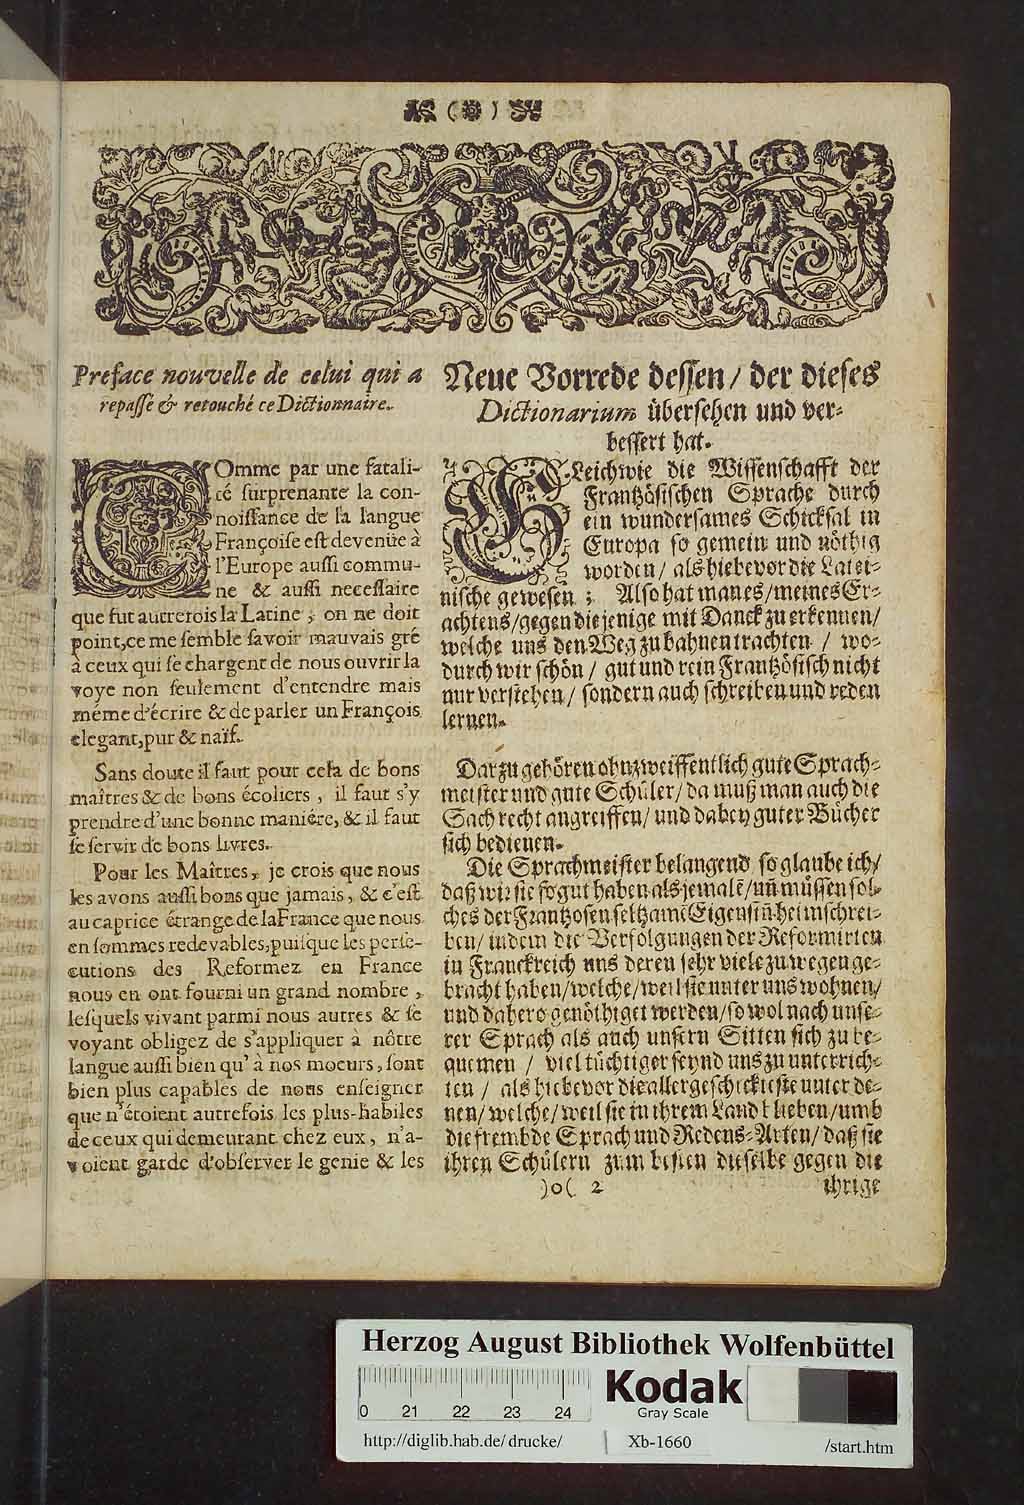 ( )
Preface nouvelle de celui qui a
repassé & retouché ce Dictionnaire.
COmme par une fatali-
té surprenante la con-
noissance de la langue
Françoise est devenüe à
l'Europe aussi commu-
ne & aussi necessaire
que fut autrefois la Latine, on ne doit
point, ce me semble savoir mauvais gré
à ceux qui se chargent de nous ouvrir la
voye non seulement d'entendre mais
méme d'écrire & de parler un François
elegant, pur & naïf.
Sans doute il faut pour cela de bons
maîtres & de bons écoliers, il faut s'y
prendre d'une bonne maniére, & il faut
se servir de bons livres.
Pour les Maîtres, je crois que nous
les avons aussi bons que jamais, & c'est
au caprice étrange de la France que nous
en sommes redevables, puisque les perse-
cutions des Reformez en France
nous en ont fourni un grand nombre,
lesquels vivant parmi nous autres & se
voyant obligez de s'appliquer à nôtre
langue aussi bien qu' à nos moeurs, sont
bien plus capables de nous enseigner
que n'étoient autrefois les plus-habiles
de ceux qui demeurant chez eux, n'a-
voient garde d'observer le genie & les
Neue Vorrede dessen / der dieses
Dictionarium übersehen und ver-
bessert hat.
GLeichwie die Wissenschafft der
Frantzösischen Sprache durch
ein wundersames Schicksal in
Europa so gemein und nöthig
worden / als hiebevor die Latei-
nische gewesen; Also hat man es / meines Er-
achtens / gegen diejenige mit Danck zu erkennen /
welche uns den Weg zu bahnen trachten / wo-
durch wir schön / gut und rein Frantzösisch nicht
nur verstehen / sondern auch schreiben und reden
lernen.
Darzu gehören ohnzweiffentlich gute Sprach-
meister und gute Schüler / da muß man auch die
Sach recht angreiffen / und dabey guter Bücher
sich bedienen.
Die Sprachmeister belangend so glaube ich /
daß wir sie so gut haben als jemalē / uñ müssen sol-
ches der Frantzosen seltzamē Eigensiñ heimschrei-
ben / indem die Verfolgungen der Reformirten
in Franckreich uns deren sehr viele zu wegen ge-
bracht haben / welche / weil sie unter uns wohnen /
und dahero genöthiget werden / so wol nach unse-
rer Sprach als auch unsern Sitten sich zu be-
quemen / viel tüchtiger seynd uns zu unterrich-
ten / als hiebevor die allergeschickteste unter de-
nen / welche / weil sie in ihrem Land blieben / umb
die frembde Sprach und Redens-Arten / daß sie
ihren Schülern zum besten dieselbe gegen die
)o( 2 ihrige
Herzog August Bibliothek Wolfenbüttel
0 21 22 23 24
Kodak
Gray Scale
http://diglib.hab.de/drucke/ Xb-1660 /start.htm